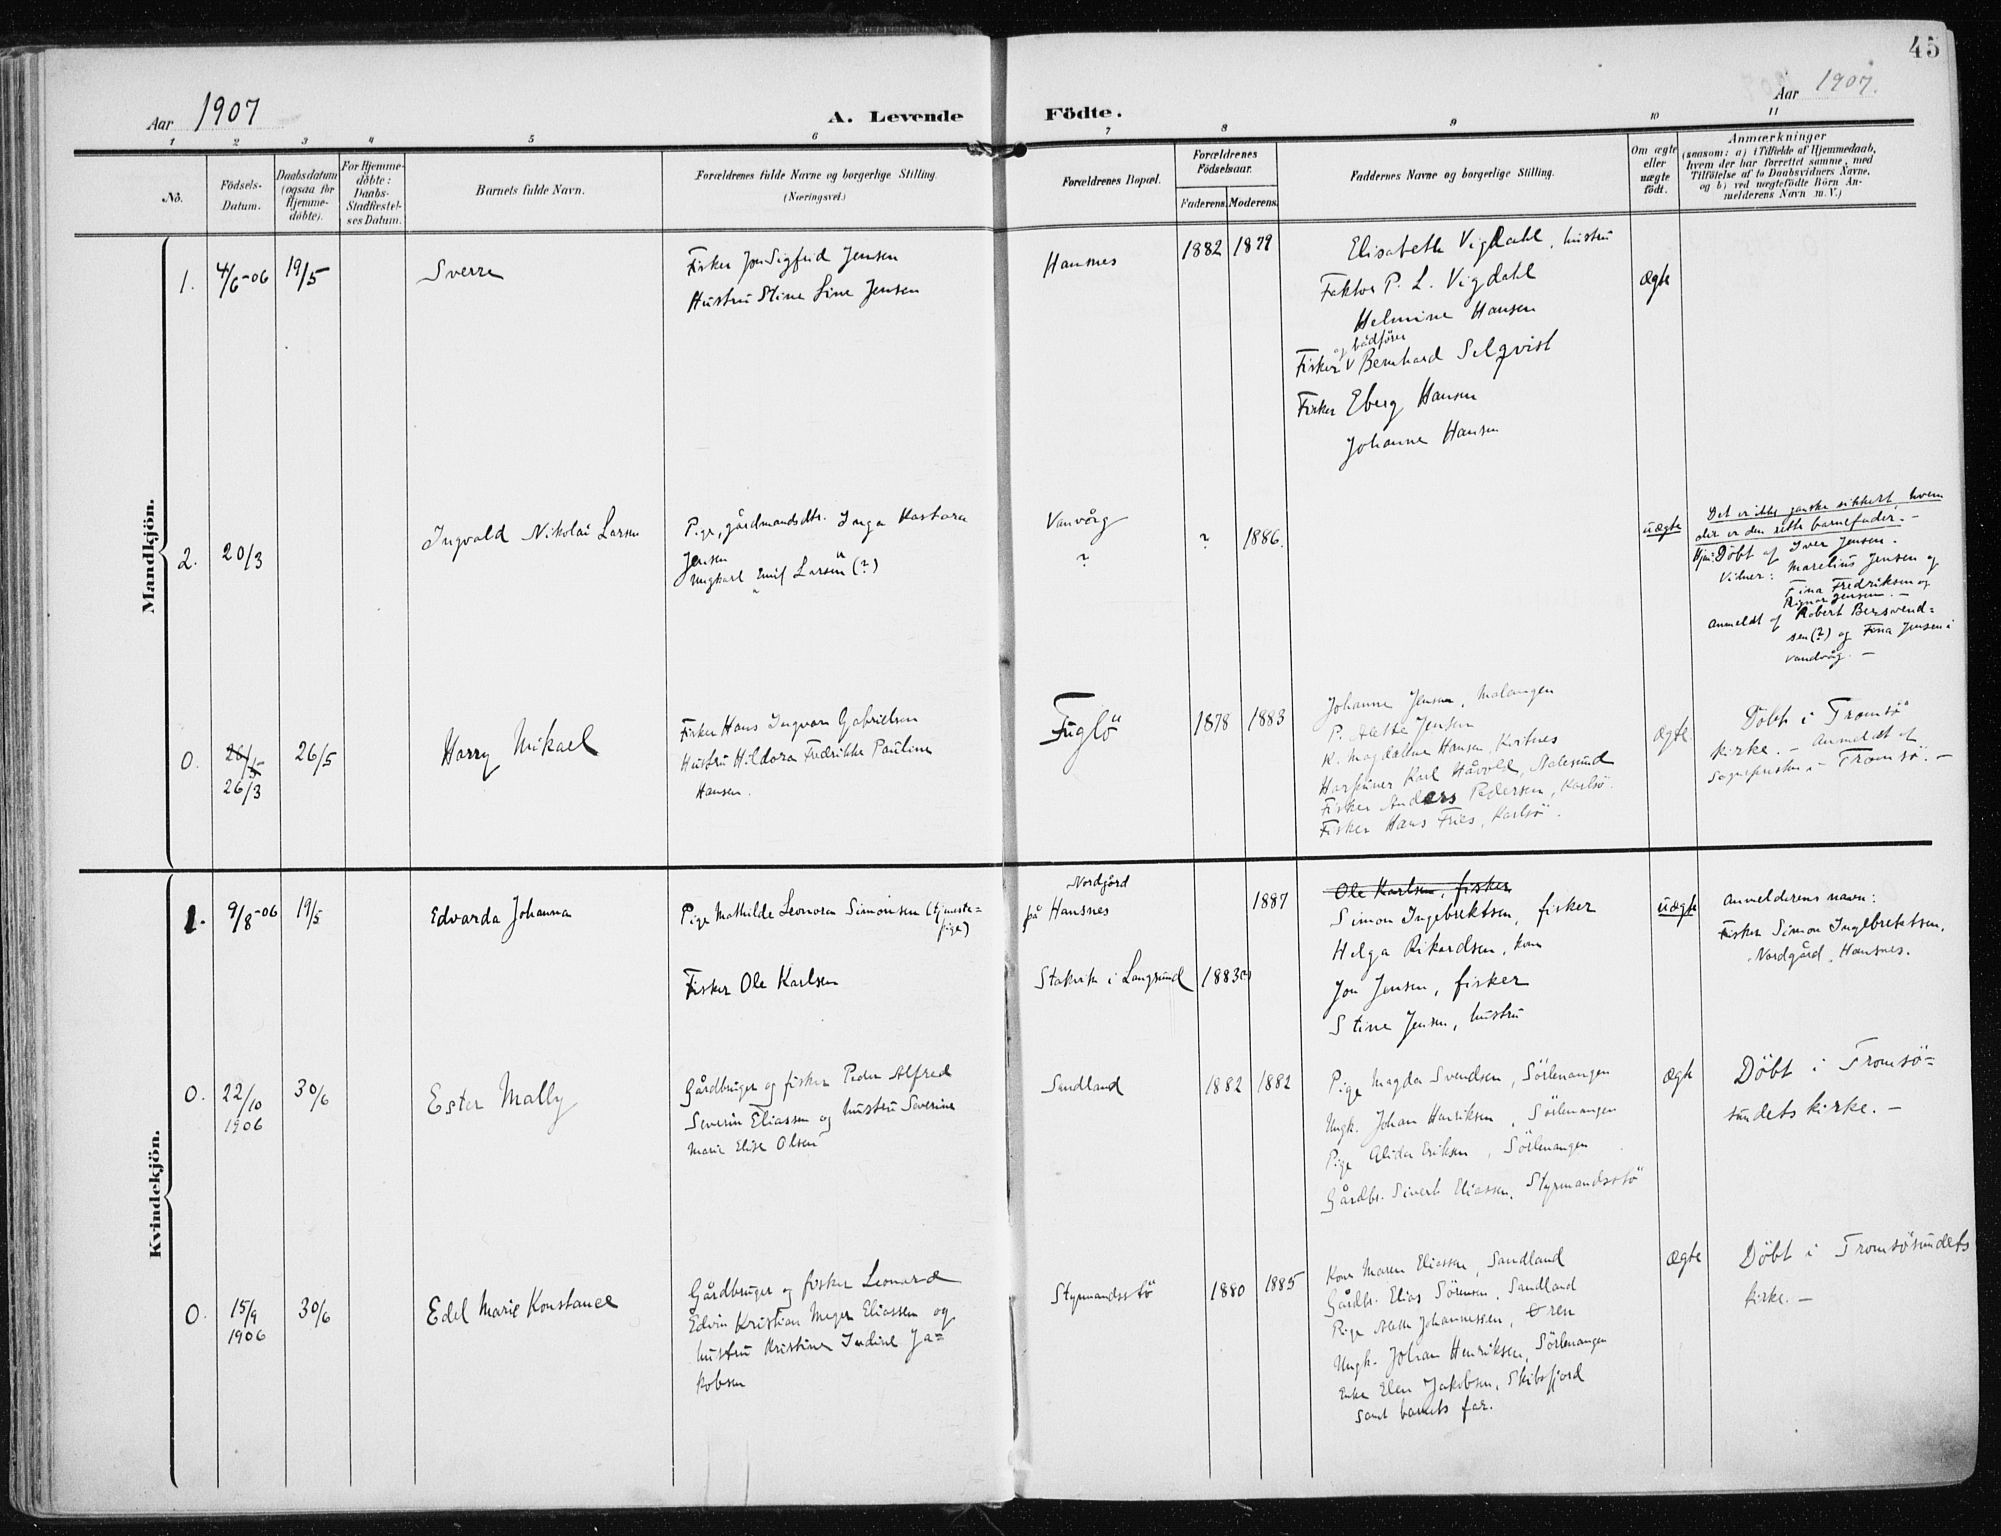 45
Aar 1907
A. Levende Födte.
Aar 1907.
1 2 3 4 5 6 7 8 9 10 11
No.
Födsels-
Datum.
Daabsdatum
(ogsaa for
Hjemme-
döbte).
For Hjemme-
döbte:
Daabs-
Stadfæstel-
ses Datum.
Barnets fulde Navn.
Forældrenes fulde Navne og borgerlige Stilling.
(Næringsvei.)
Forældrenes Bopæl.
Forældrenes
Födselsaar.
Faderens. Moderens.
Faddernes Navne og borgerlige Stilling.
Om ægte
eller
uægte
födt.
Anmærkninger
(saasom: a) i Tilfælde af Hjemmedaab,
hvem der har forrettet samme, med
Tilföielse af to Daabsvidners Navne,
og b) ved uægtefödte Börn An-
melderens Navn m. V.)
Mandkjön.
1. 4/6-06 19/5
Sverre
Fisker Jon Sigfrid Jensen
Hustru Stine Line Jensen
Hansnes
1882 1879
Elisabeth Vigdahl, hustru
Faktor P. L. Vigdahl
Helmine Hansen
og bådfører
Fisker v Bernhard Selqvist
Fisker Eberg Hansen
Johanne Hansen
ægte
2. 20/3
Ingvald Nikolai Larsen
Pige, gårdmandsdtr. Inga Kastara
Jensen
Ungkarl Emil Larsen (?)
Vanvåg
?
? 1886.
uægte
Det er ikke ganske sikkert, hvem
der er den rette barnefader. -
Hjm: Döbt af Iver Jensen.
Vidner: Marelius Jensen og
Fina Fredriksen og
Ragnar Jensen. -
Anmeldt af Robert Berswend=
sen (?) og Fina Jensen i
Vandvåg. -
0. 26/5
26/3
26/5
Harry Mikael
Fisker Hans Ingvar Gabrielsen
Hustru Hildora Fredrikke Pauline
Hansen.
Fuglö
1878 1883
Johanne Jensen, Malangen
P. Aette Jensen
K. Magdalene Hansen, Kvitnes
Harpuner Karl Håvold, Aalesund
Fisker Anders Pedersen, Karlsö.
Fisker Hans Fries, Karlsö.
ægte
Döbt i Tromsö
kirke. - Anmeldt af
Sognepresten i Tromsö. -
Kvindekjön.
1. 9/8-06 19/5
Edvarda Johanna
Pige Mathilde Leonora Simonsen (tjeneste=
pige)
Fisker Ole Karlsen
Nordgård
på Hansnes
Stakvik i Langsund
1887
1883
Ole Karlsen, fisker
Simon Ingebrektsen, fisker
Helga Rikardsen, kone
Jon Jensen, fisker
Stine Jensen, hustru
uægte
Anmelderens navn:
Fisker Simon Ingebrektsen,
Nordgård, Hansnes.
0. 22/10
1906
30/6
Ester Mally
Gårdbruger og fisker Peder Alfred
Severin Eliassen og hustru Severine
Marie Elise Olsen
Sandland
1882 1882
Pige Magda Svendsen, Sörlenangen
Ungk. Johan Henriksen, Sörlenangen
Pige Alida Eriksen, Sörlenangen
Gårdbr. Sivert Eliassen, Styrmandsstö
ægte
Döbt i Tromsö=
sundets kirke. -
0. 15/9
1906
30/6
Edel Marie Konstance
Gårdbruger og fisker Leonard
Edvin Kristian Meyer Eliassen og
hustru Kristine Indine Ja=
kobsen
Styrmandsstö
1880 1885
Kone Maren Eliassen, Sandland
Gårdbr. Elias Sörensen, Sandland
Pige Aette Johannessen,
Ungk. Johan Henriksen, Sörlenangen
Enke Elen Jakobsen, Skibsfjord
samt barnets far.
ægte
Döbt i Tromsösundets
kirke. -